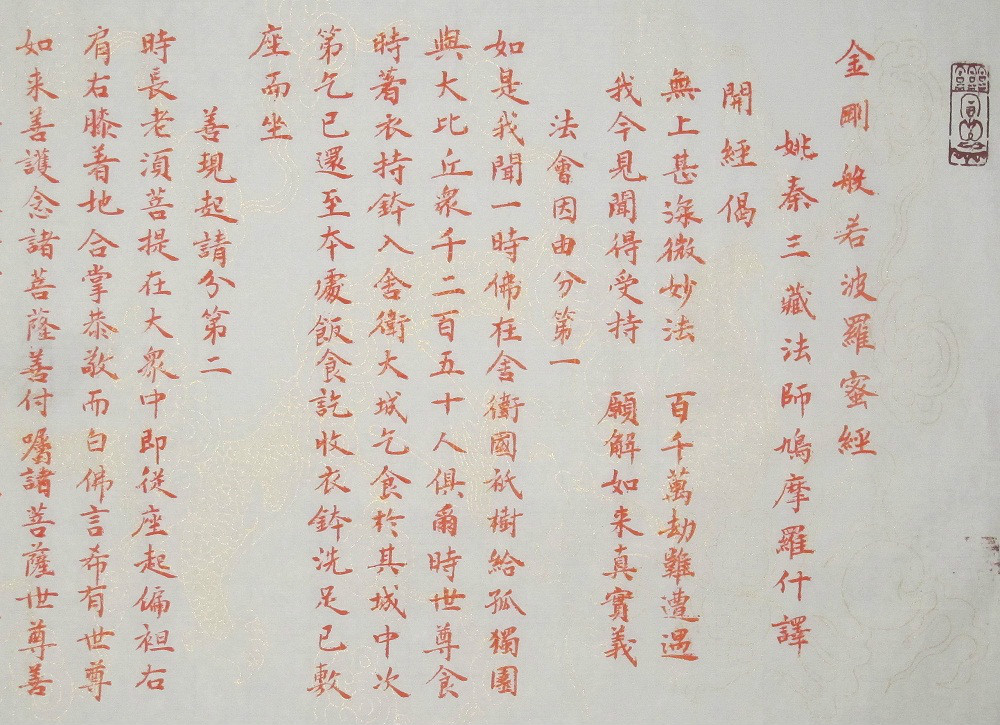 金剛般若波羅蜜經
姚秦三藏法師鳩摩羅什譯
開經偈
無上甚深微妙法　百千萬劫難遭遇
我今見聞得受持　願解如来真實義
法會因由分第一
如是我聞一時佛在舍衛國祇樹給孤獨園
與大比丘衆千二百五十人俱爾時世尊食
時著衣持鉢入舍衛大城乞食於其城中次
第乞已還至本處飯食訖收衣鉢洗足已敷
座而坐
善現起請分第二
時長老須菩提在大衆中即從座起偏袒右
肩右膝着地合掌恭敬而白佛言希有世尊
如来善護念諸菩薩善付囑諸菩薩世尊善